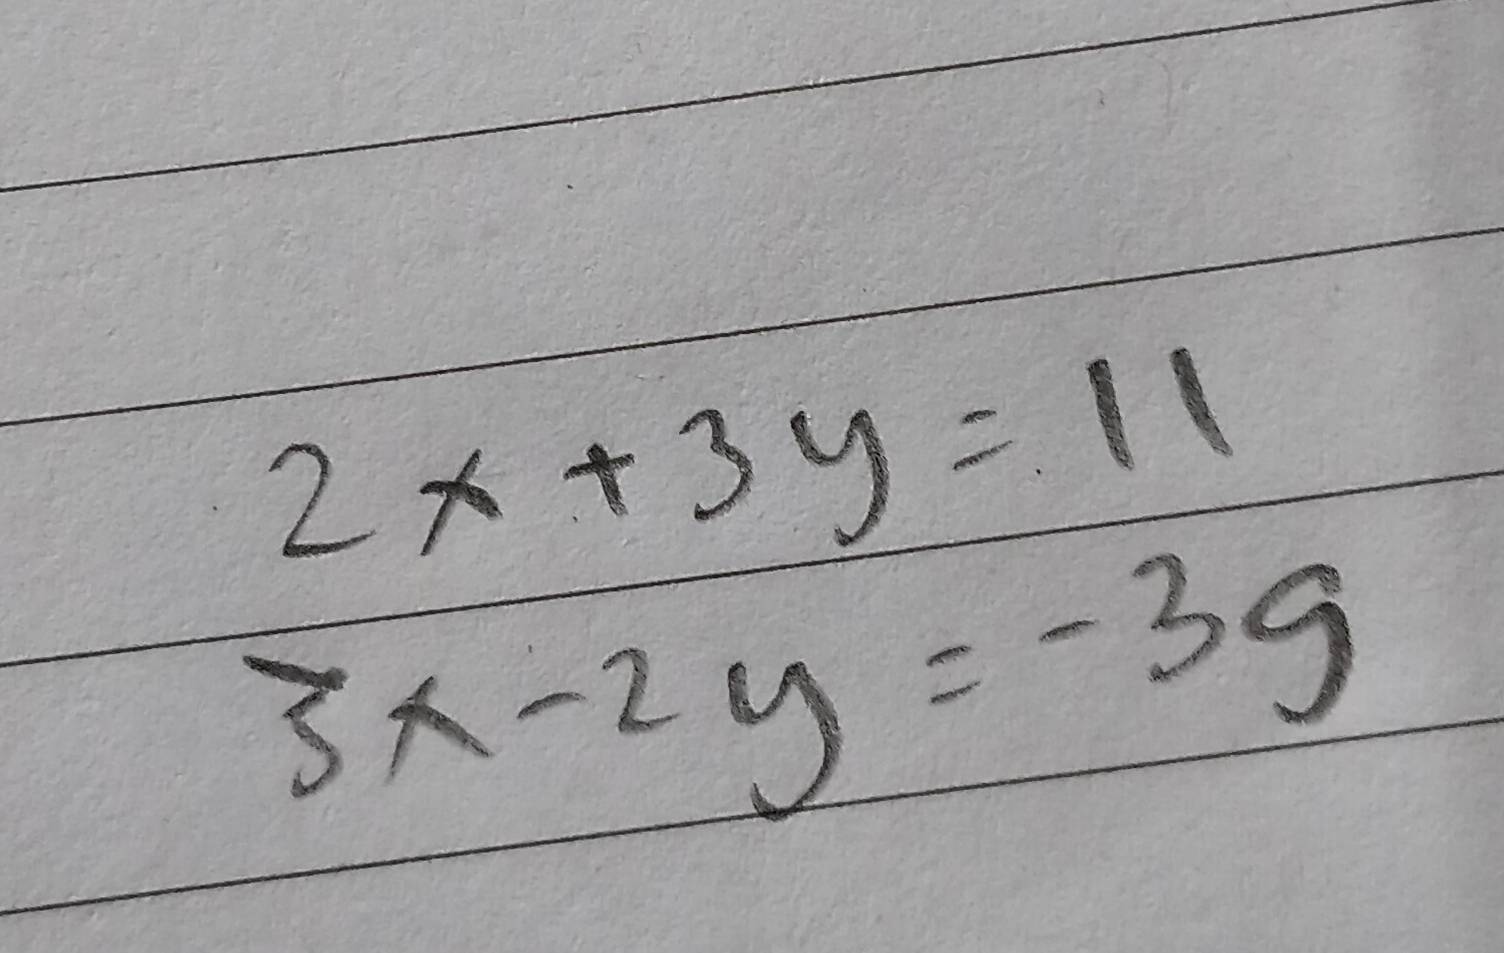 2x + 3y = 11
3x - 2y = -39